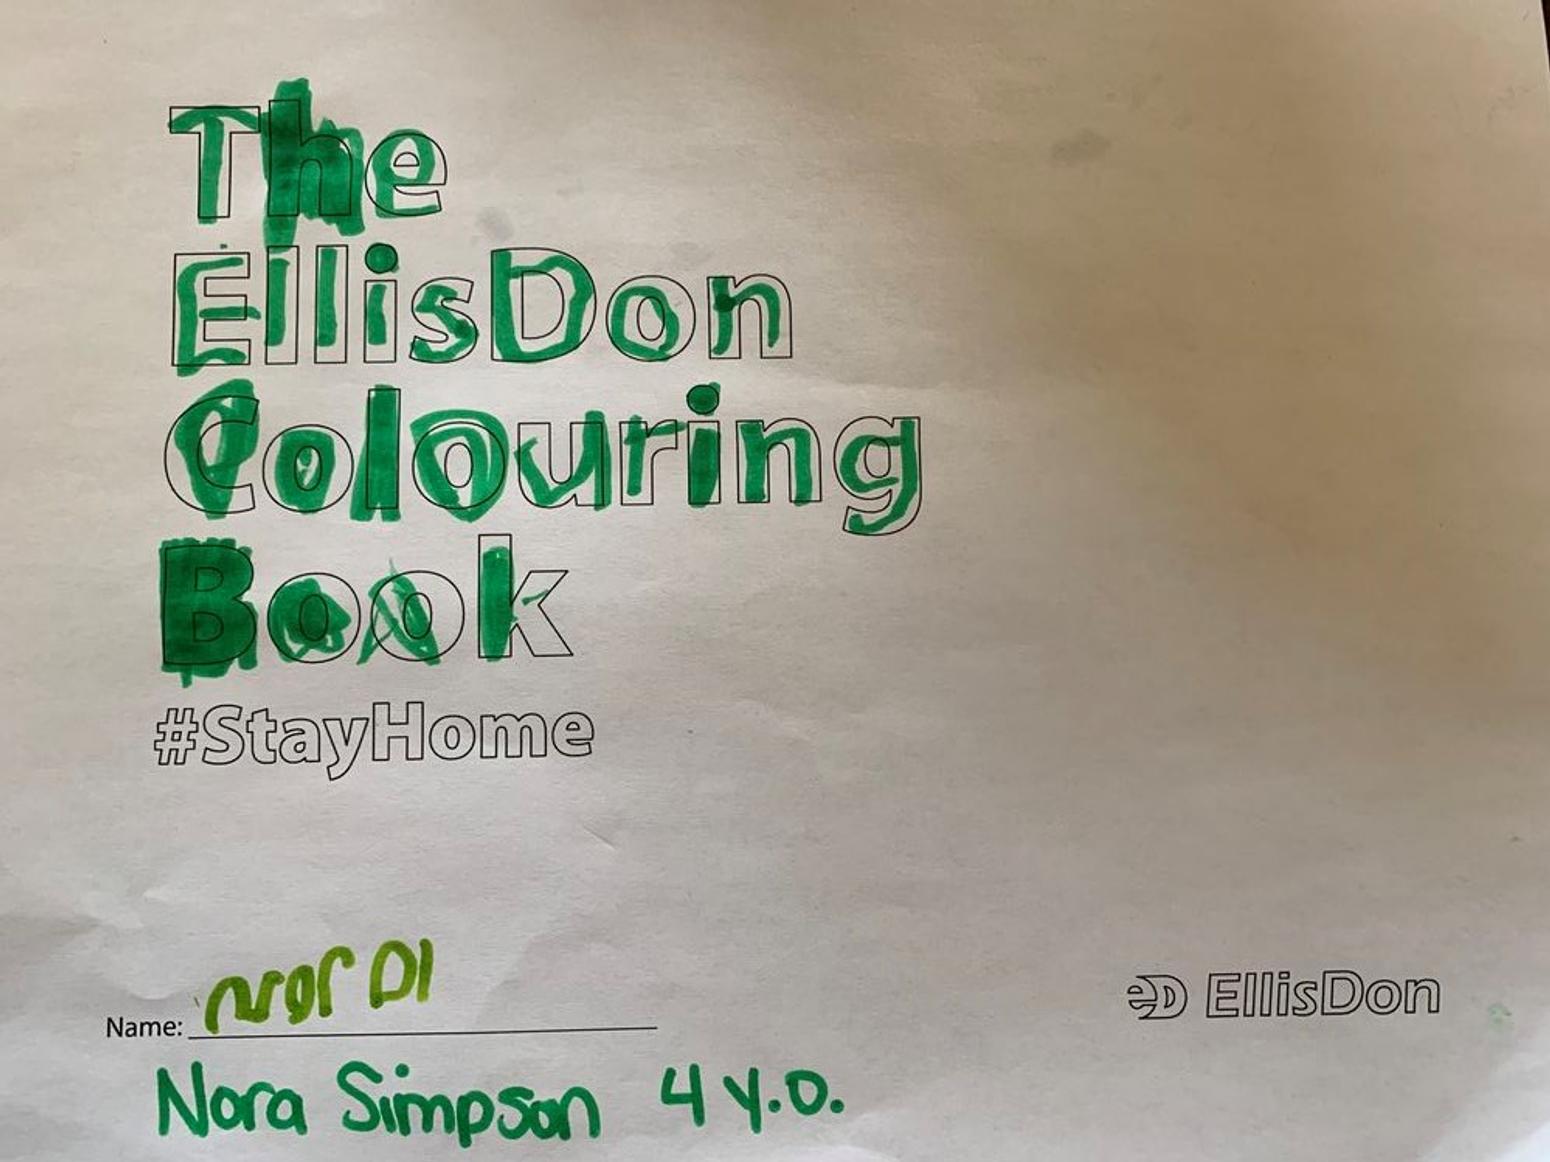 The
EllisDon
Colouring
Book
#StayHome
Name:
Nora Simpson 4 y.o.
eD EllisDon